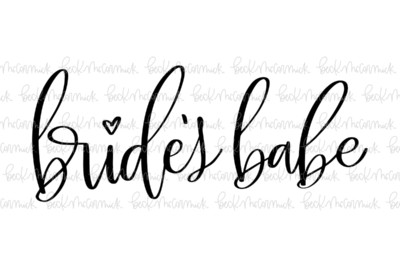 bride's babe